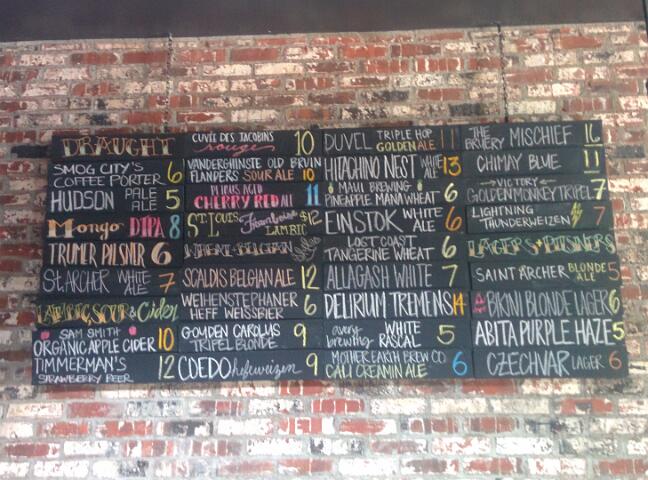 DRAUGHT
SMOG CITY'S
COFFEE PORTER 6
HUDSON PALE
ALE 5
MONGO DIPA 8
TRUMER PILSNER 6
ST. ARCHER WHITE
ALE 7
LAMBIC, SOUR & Cider
SAM SMITH
ORGANIC APPLE CIDER 10
TIMMERMAN'S
STRAWBERRY BEER 12
CUVÉE DES JACOBINS
rouge 10
VANDERGHINSTE OLD BRUIN
FLANDERS SOUR ALE 10
PETRUS AGED
CHERRY RED ALE 11
ST. LOUIS Framboise $12
LAMBIC
WHEAT + BELGIAN
SCALDIS BELGIAN ALE 12
WEIHENSTEPHANER
HEFF WEISSBIER 6
GOUDEN CAROLUS
TRIPEL BLONDE 9
COEDO hefeweizen 9
DUVEL TRIPLE HOP
GOLDEN ALE 11
HITACHINO NEST WHITE
ALE 13
MAUI BREWING
PINEAPPLE MANA WHEAT 6
EINSTOK WHITE
ALE 6
LOST COAST
TANGERINE WHEAT 6
ALLAGASH WHITE 7
DELIRIUM TREMENS 14
avery
brewing WHITE
RASCAL 5
MOTHER EARTH BREW CO.
CALI CREAMIN ALE 6
THE
BRUERY MISCHIEF 16
CHIMAY BLUE 11
VICTORY
GOLDEN MONKEY TRIPEL 7
LIGHTNING
THUNDERWEIZEN 7
LAGERS + PILSNERS
SAINT ARCHER BLONDE
ALE 5
BIKINI BLONDE LAGER 6
ABITA PURPLE HAZE 5
CZECHVAR LAGER 6